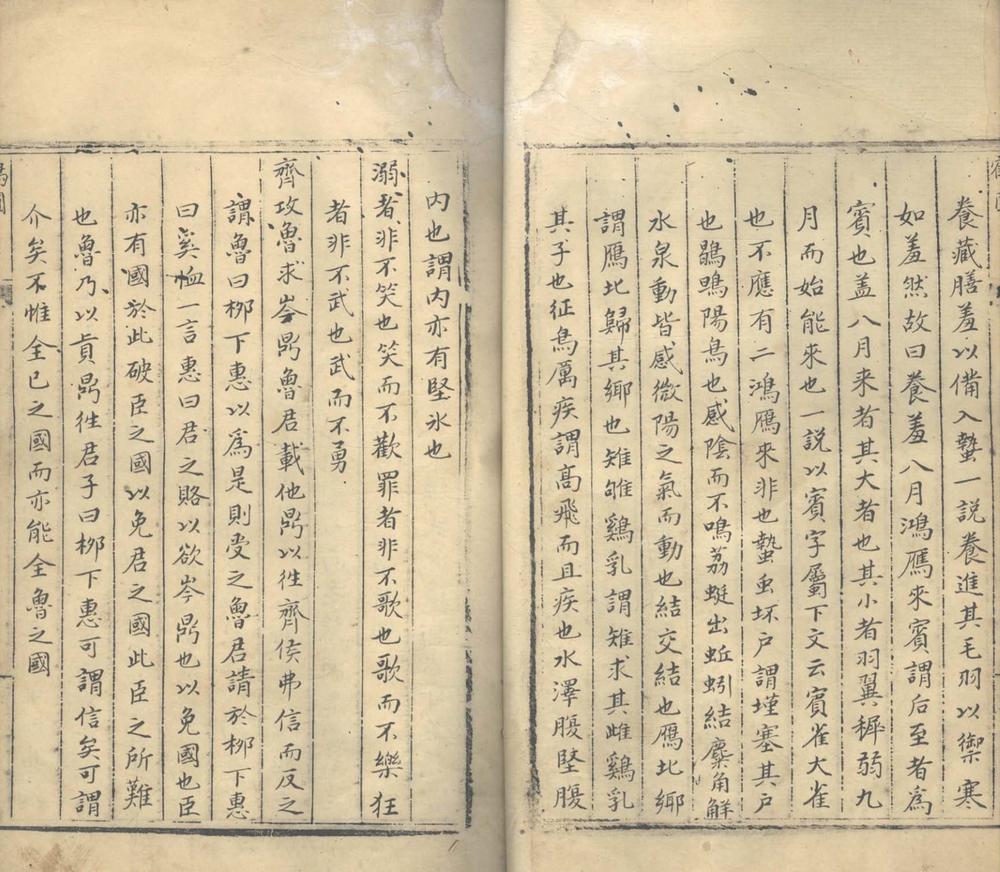 養藏膳羞以備入蟄一説養進其毛羽以禦寒
如羞然故曰養羞八月鴻鴈來賓謂后至者爲
賓也盖八月来者其大者也其小者羽翼穉弱九
月而始能來也一説以賓字屬下文云賓雀大雀
也不應有二鴻鴈來非也蟄虫坏户謂墐塞其户
也鶡鴠陽鳥也感陰而不鳴荔蜓出蚯蚓結麋角解
水泉動皆感微陽之氣而動也結交結也鴈北鄉
謂鴈北歸其鄉也雉雊鷄乳謂雉求其雌鷄乳
其子也征鳥厲疾謂髙飛而且疾也水澤腹堅腹
内也謂内亦有堅氷也
溺者非不笑也笑而不歡罪者非不歌也歌而不樂狂
者非不武也武而不勇
齊攻魯求岑鼎魯君載他鼎以徃齊侯弗信而反之
謂魯曰栁下惠以爲是則受之魯君請於栁下惠
曰奚恤一言惠曰君之賂以欲岑鼎也以免國也臣
亦有國於此破臣之國以免君之國此臣之所難
也魯乃以真鼎徃君子曰栁下惠可謂信矣可謂
介矣不惟全已之國而亦能全魯之國